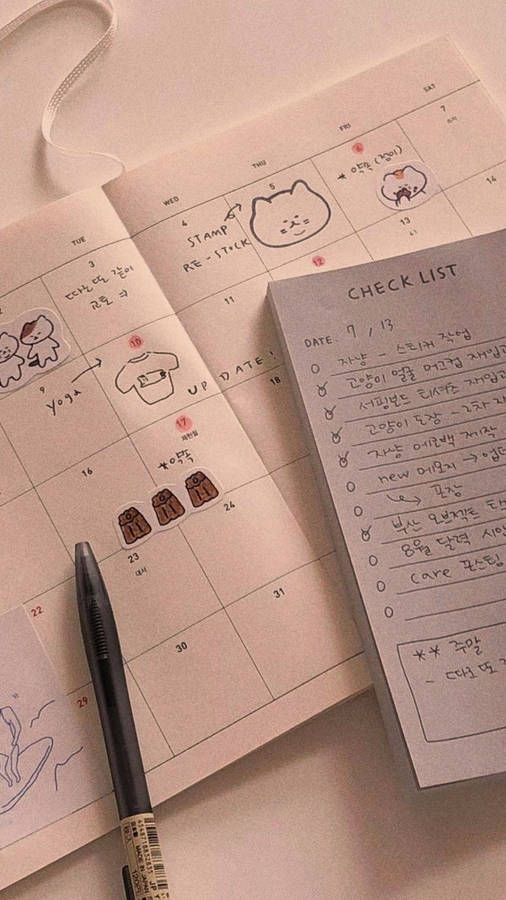 TUE
WED
THU
FRI
SAT
3
따로 또 같이
4
STAMP
RE-STOCK
5
6
* 약속
7
소서
9
yoga
10
UP DATE!
11
12
13
14
16
17
제헌절
* 약속
18
22
23
대서
24
29
30
31
CHECK LIST
DATE. 7 / 13
자냥 - 스티커 작업
고양이 얼굴 머그컵 재입고
서핑보드 티셔츠 재입고
고양이 도장 - 2차
자냥 에코백 제작
new 메모지 →
포장
부산 오브젝트
8월 달력
care 포스팅
** 주말
- 따로 또
MADE IN JAPAN